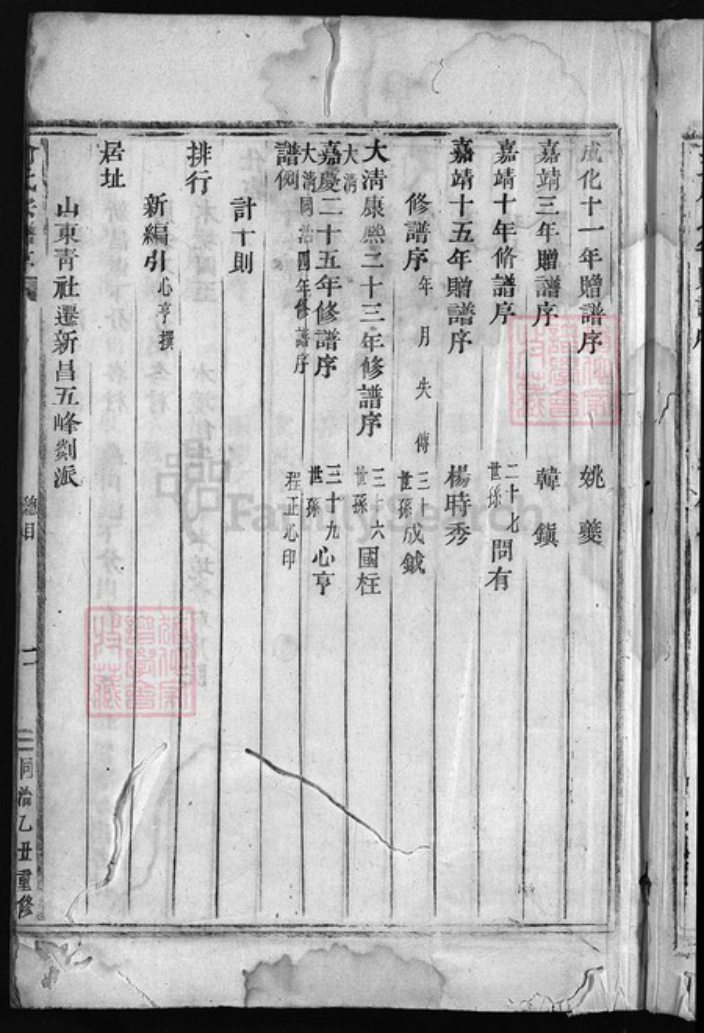 成化十一年贈譜序 姚夔
嘉靖三年贈譜序 韓鎮
嘉靖十年脩譜序 二十七世孫問有
嘉靖十五年贈譜序 楊時秀
修譜序年月失傳 三十世孫成鉞
大清康熙二十三年修譜序 三十六世孫國柱
大清嘉慶二十五年修譜序 三十九世孫心亨
大清同治四年修譜序 程正心印
譜例
計十則
排行
新編引心亨撰
居址
山東青社遷新昌五峰剡派
總目
同治乙丑重修
FamilySearch